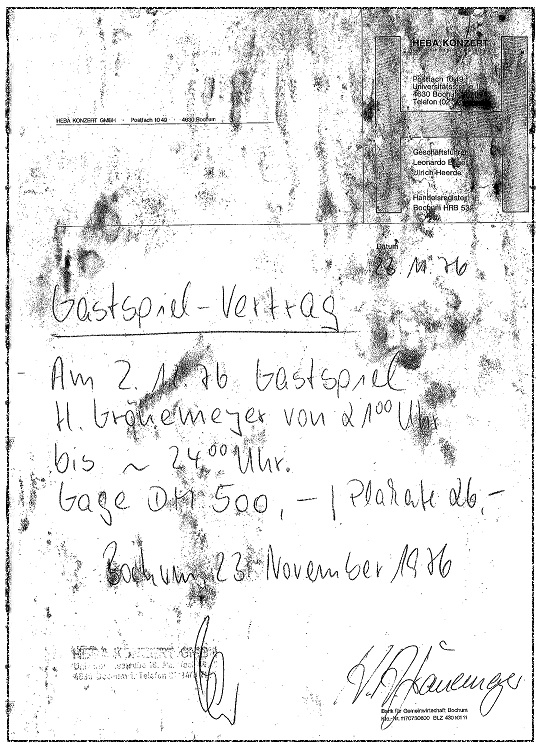 HEBA KONZERT
Postfach 10 49
Universitätsstr.
4630 Bochum
Telefon (02
HEBA KONZERT GMBH · Postfach 10 49 · 4630 Bochum
Geschäftsführer
Leonardo
Ulrich Heerde
Handelsregister
Bochum HRB 53
Datum
23 11. 76
Gastspiel-Vertrag
Am 2. 76 Gastspiel
H. Grönemeyer von 21 00 Uhr
bis ~ 24 00 Uhr.
Gage DM 500,- | Plakate 26,-
Bochum 23 November 1976
HEBA KONZERT GMBH
4630 Bochum 1, Telefon
H. Grönemeyer
Bank für Gemeinwirtschaft Bochum